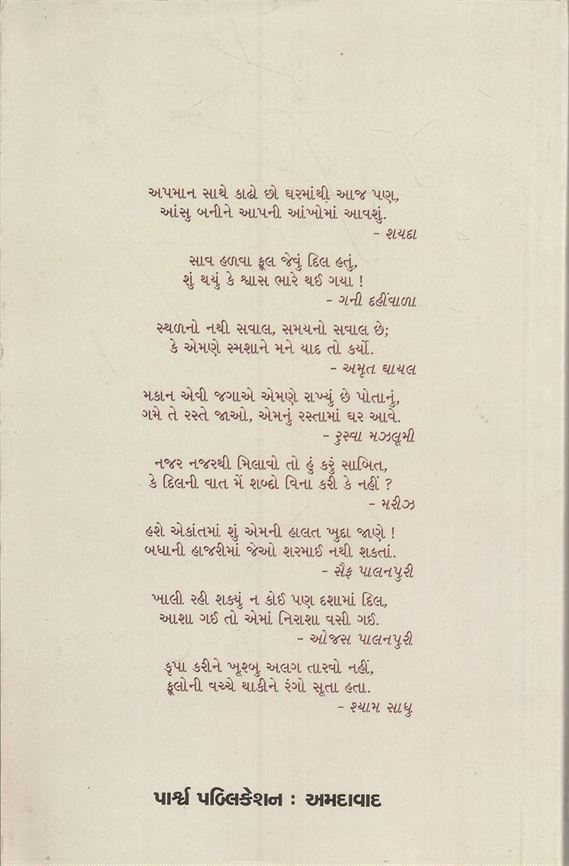 અપમાન સાથે કાઢો છો ઘરમાંથી આજ પણ,
આંસુ બનીને આપની આંખોમાં આવશું.
- શયદા
સાવ હળવા ફૂલ જેવું દિલ હતું,
શું થયું કે શ્વાસ ભારે થઈ ગયા !
- ગની દહીંવાળા
સ્થળનો નથી સવાલ, સમયનો સવાલ છે;
કે એમણે સ્મશાને મને યાદ તો કર્યો.
- અમૃત ઘાયલ
મકાન એવી જગાએ એમણે રાખ્યું છે પોતાનું,
ગમે તે રસ્તે જાઓ, એમનું રસ્તામાં ઘર આવે.
- રુસ્વા મઝલૂમી
નજર નજરથી મિલાવો તો હું કરું સાબિત,
કે દિલની વાત મેં શબ્દો વિના કરી કે નહીં ?
- મરીઝ
હશે એકાંતમાં શું એમની હાલત ખુદા જાણે !
બધાની હાજરીમાં જેઓ શરમાઈ નથી શકતાં.
- સૈફ પાલનપુરી
ખાલી રહી શક્યું ન કોઈ પણ દશામાં દિલ,
આશા ગઈ તો એમાં નિરાશા વસી ગઈ.
- ઓજસ પાલનપુરી
કૃપા કરીને ખૂશ્બુ અલગ તારવો નહીં,
ફૂલોની વચ્ચે થાકીને રંગો સૂતા હતા.
- શ્યામ સાધુ
પાર્શ્વ પબ્લિકેશન : અમદાવાદ